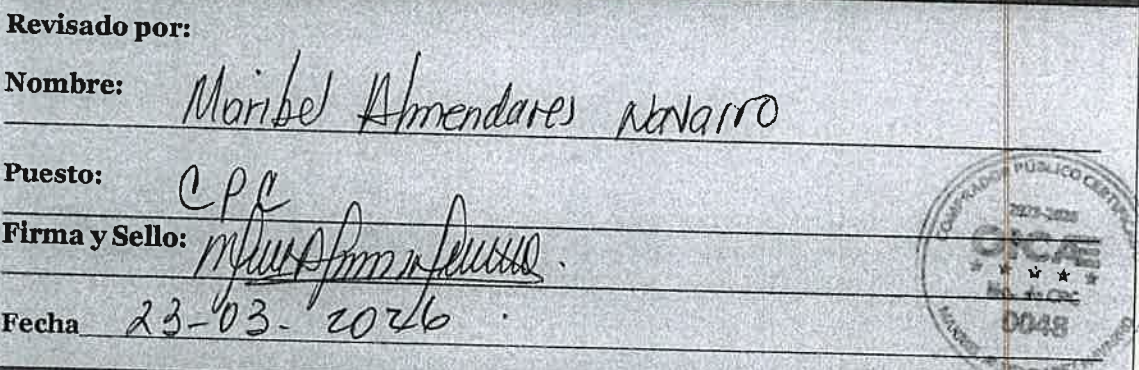 Revisado por:
Nombre: Maribel Almendares Navarro
Puesto: CPC
Firma y Sello:
Fecha 23-03-2026
COMPRADOR PÚBLICO CERTIFICADO
ONCAE
0048